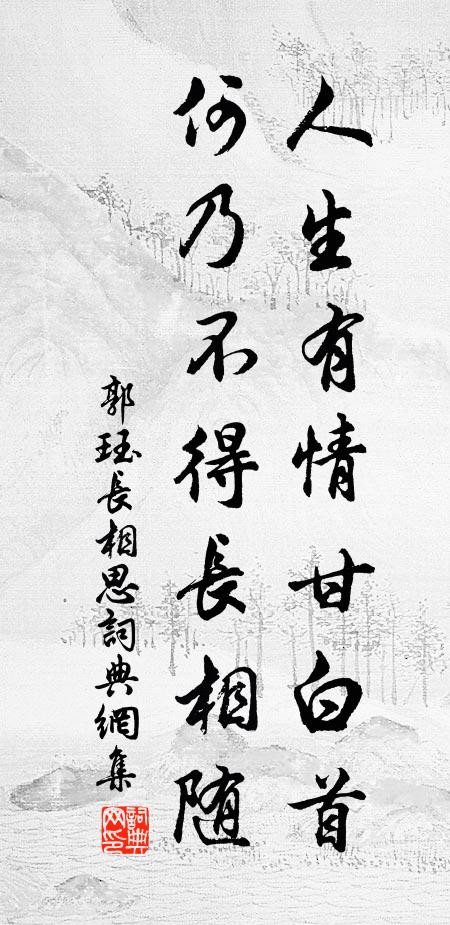 人生有情甘白首
何乃不得長相随
郭珏長相思詞典網集
詞典
网印